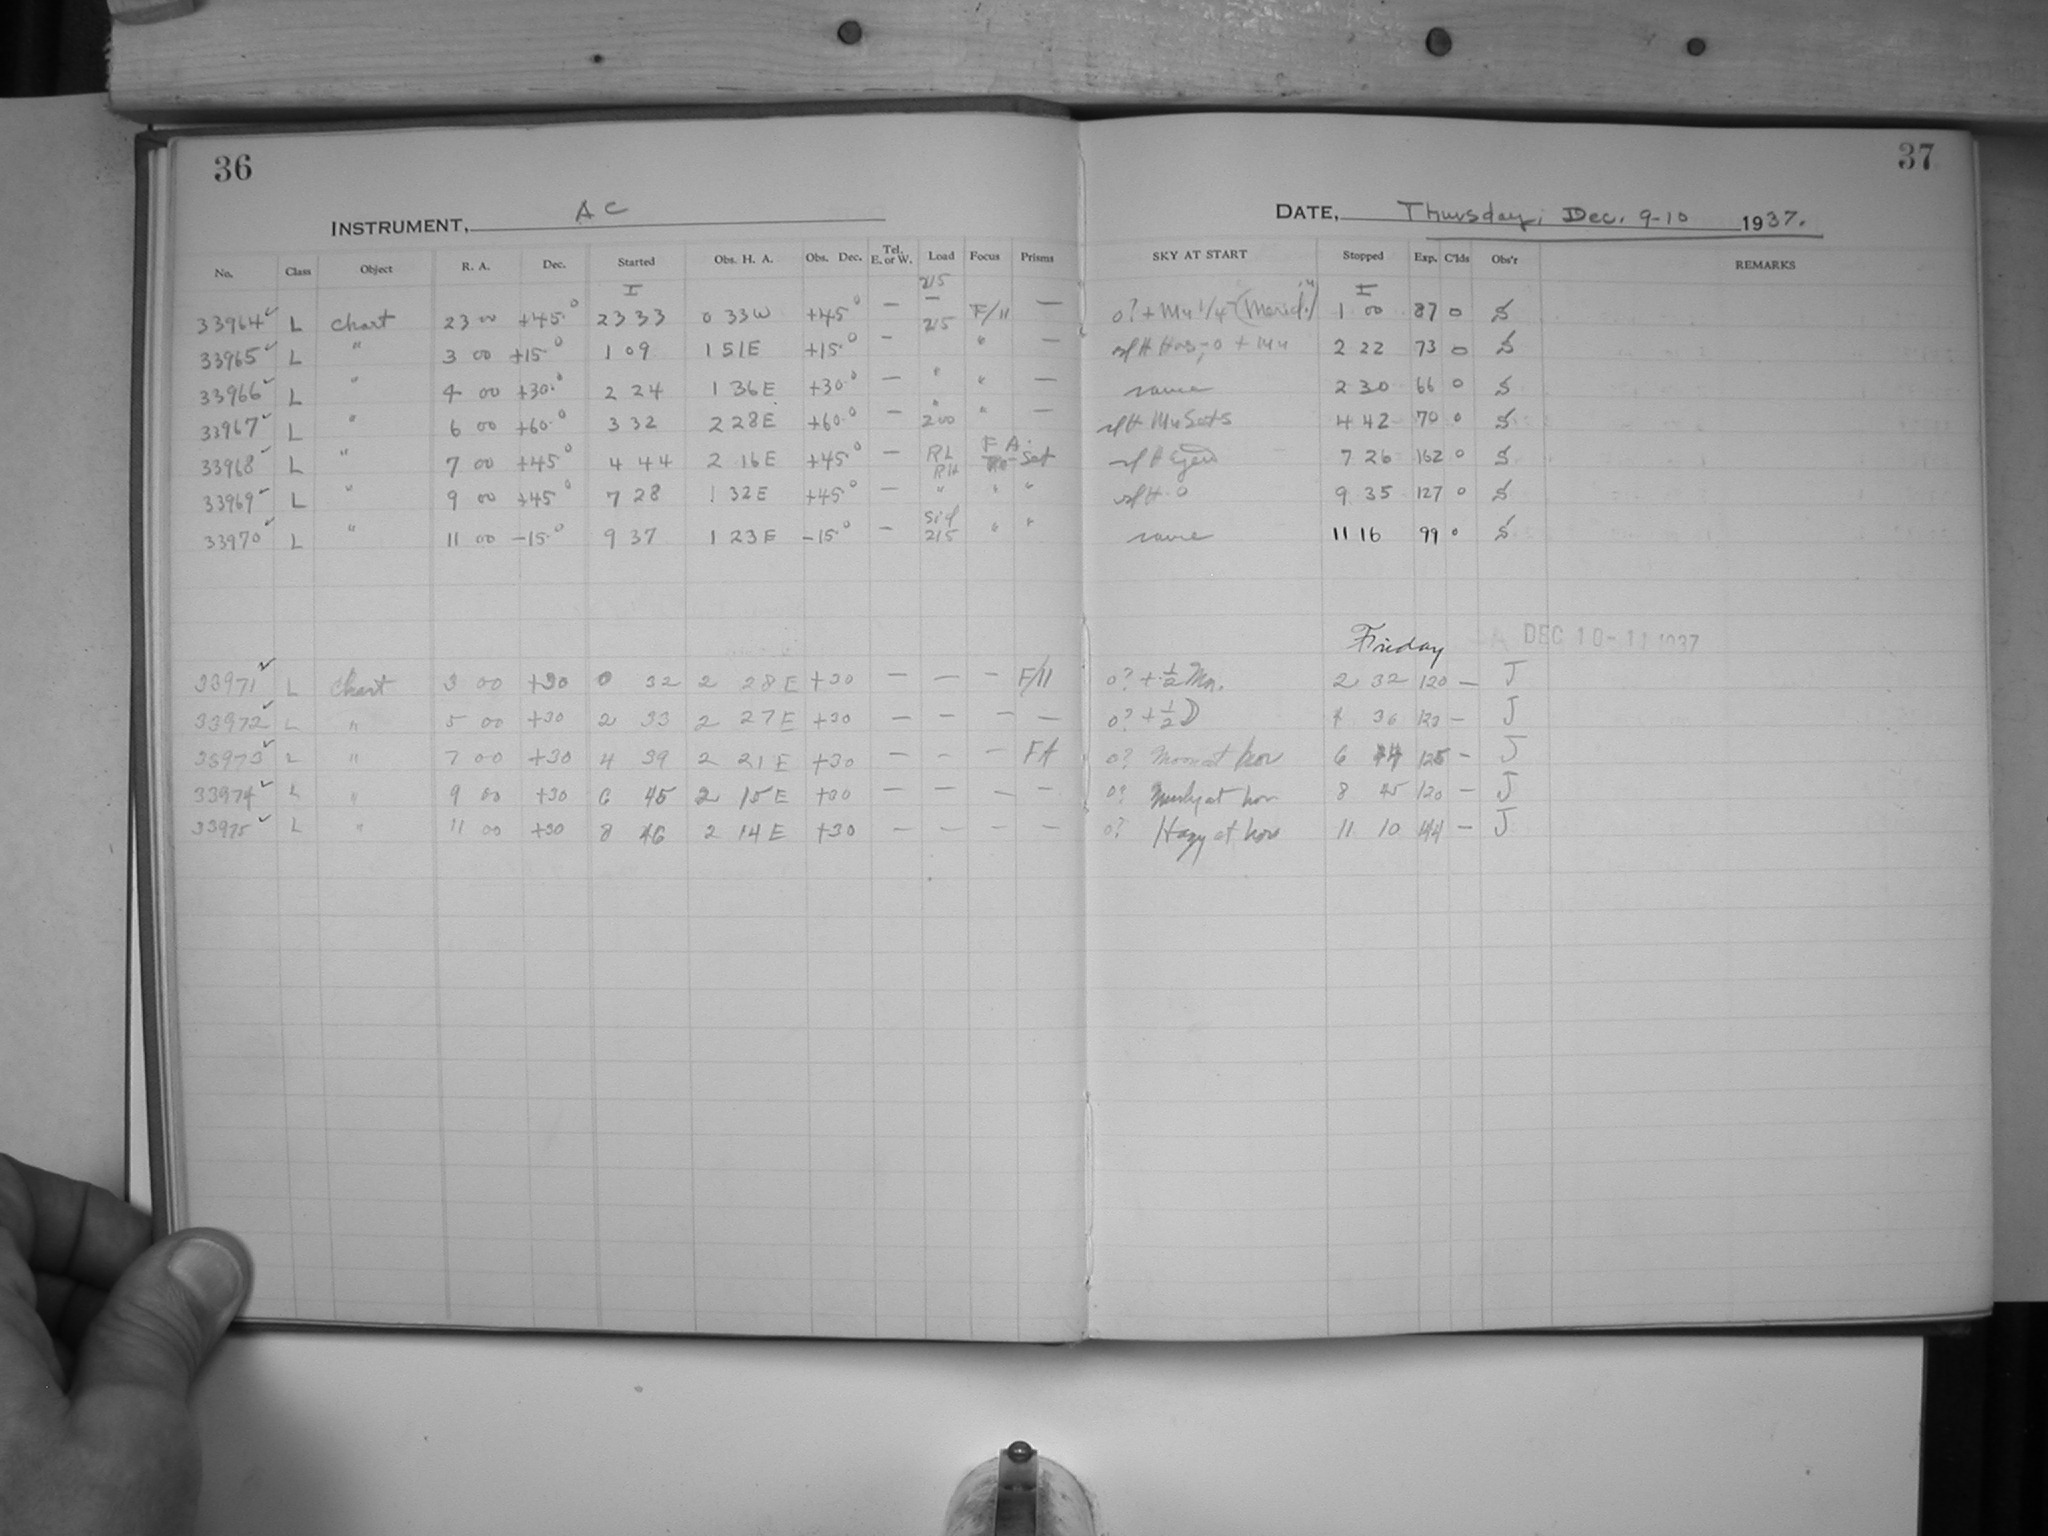 36
37
INSTRUMENT, A C
DATE, Thursday, Dec. 9-10 1937.
No. Class Object R. A. Dec. Started Obs. H. A. Obs. Dec. Tel. E. or W. Load Focus Prisms SKY AT START Stopped Exp. C'lds Obs'r REMARKS
I 215 I
33964 ✓ L chart 23 00 +45° 23 33 0 33W +45° — — F/11 — 0? + Mn 1/4 (Merid.) 1 00 87 0 S
215
33965 ✓ L " 3 00 +15° 1 09 1 51E +15° — " — 0 + Mn 2 22 73 0 S
33966 ✓ L " 4 00 +30° 2 24 1 36E +30° — " " — same 2 30 66 0 S
33967 ✓ L " 6 00 +60° 3 32 2 28E +60° — " 200 " — Mn Sets 4 42 70 0 S
33968 ✓ L " 7 00 +45° 4 44 2 16E +45° — RL RH F A. Set 7 26 162 0 S
33969 ✓ L " 9 00 +45° 7 28 1 32E +45° — " " " 0 9 35 127 0 S
33970 ✓ L " 11 00 -15° 9 37 1 23E -15° — Sid 215 " " same 11 16 99 0 S
Friday DEC 10-11 1937
33971 ✓ L Chart 3 00 +30 0 32 2 28E +30 — — — F/11 0? + 1/2 Mn. 2 32 120 — J
33972 ✓ L " 5 00 +30 2 33 2 27E +30 — — — — 0? + 1/2 D 4 36 123 — J
33973 ✓ L " 7 00 +30 4 39 2 21E +30 — — — FA 0? Moon at hor 6 44 125 — J
33974 ✓ L " 9 00 +30 6 45 2 15E +30 — — — — 0? at hor 8 45 120 — J
33975 ✓ L " 11 00 +30 8 46 2 14E +30 — — — — 0? Hazy at hor 11 10 144 — J